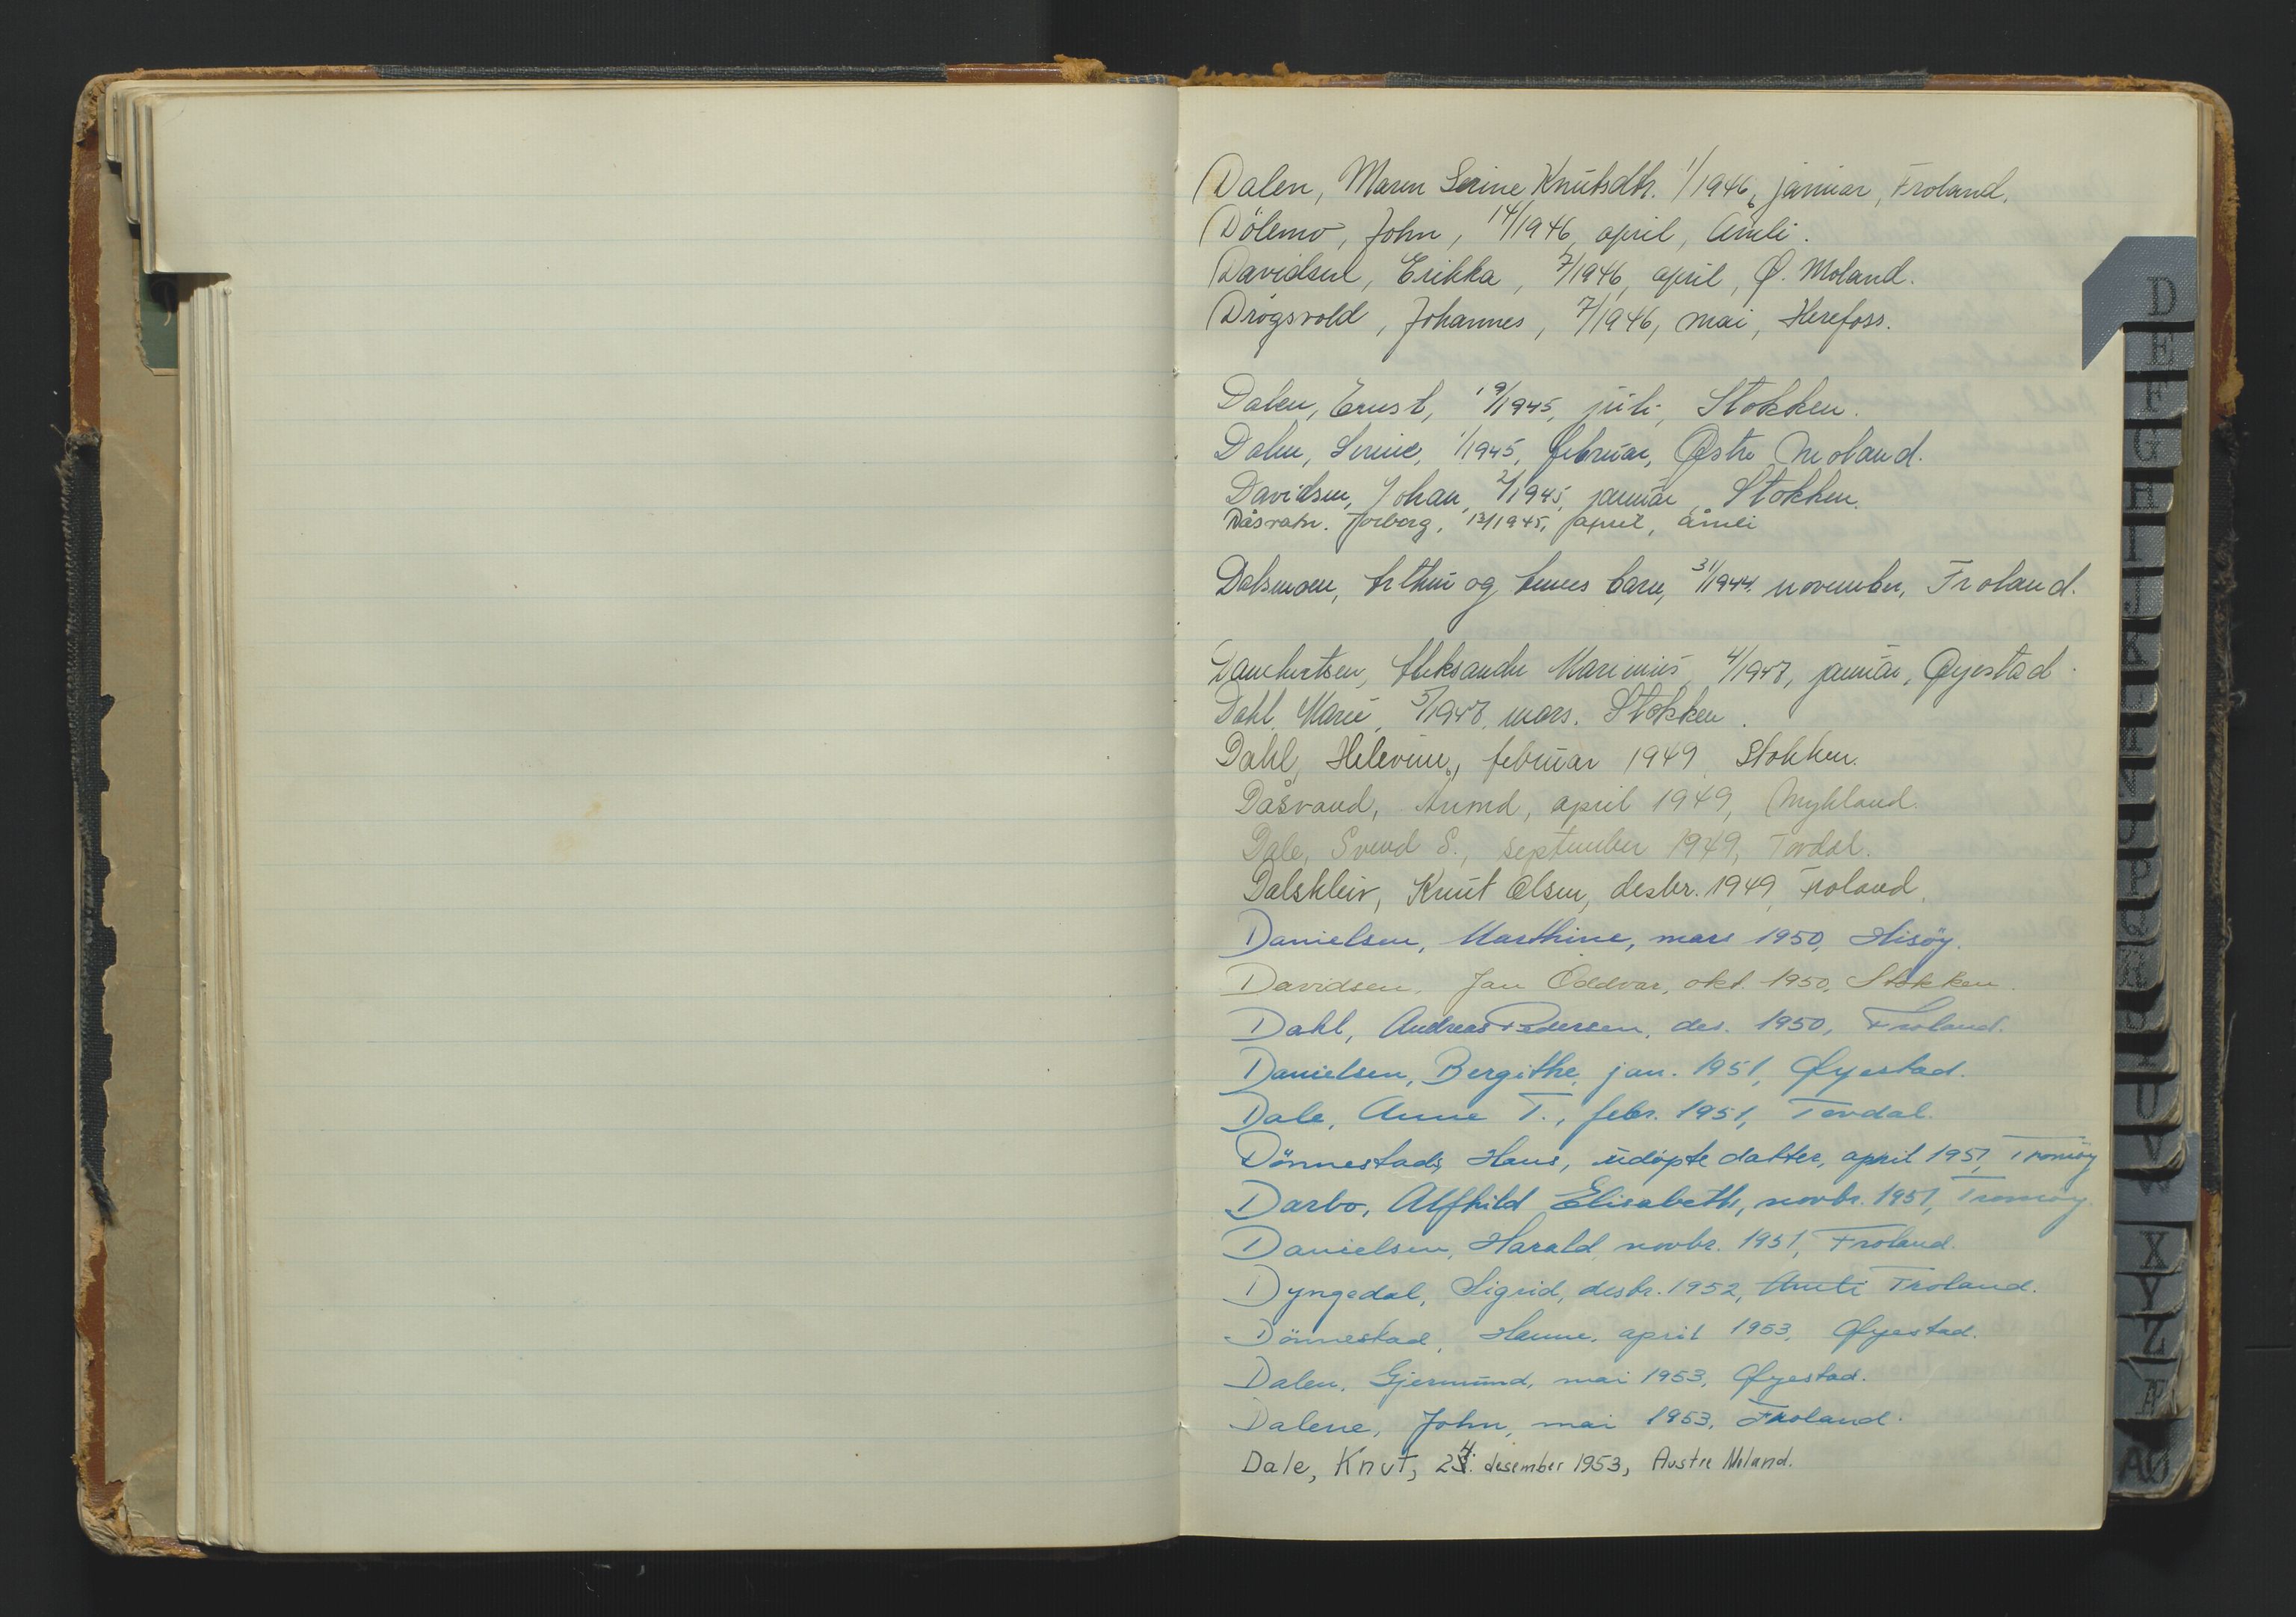 Dalen, Maren Serine Knutsdtr. 1/1946, januar, Froland.
Dölemo, John, 14/1946, april, Åmli.
Davidsen, Erikka, 7/1946, april, Ø. Moland.
Drögsvold, Johannes, 7/1946, mai, Herefoss.
Dalen, Ernst, 19/1945, juli, Stokken.
Dalen, Serine, 1/1945, februar, Østre Moland.
Davidsen, Johan, 2/1945, januar, Stokken.
Dåsvatn. Torborg, 13/1945, april, åmli
Dalsmoen, Arthur og barn, 31/1944, november, Froland.
Aleksander Marinius, 4/1948, januar, Øyestad.
Dahl, Marie, 5/1948, mars. Stokken.
Dahl, februar 1949, Stokken.
Dåsvand, april 1949, Mykland.
Dale, Svend S., september 1949, Tovdal.
Dalskleiv, Knut Olsen, desbr. 1949, Froland.
Danielsen, Marthine, mars 1950, Hisöy.
Davidsen, Jan Oddvar, okt. 1950, Stokken.
Dahl, Andreas Pedersen, des. 1950, Froland.
Danielsen, Bergithe, jan. 1951, Øyestad.
Dale, Anne T., febr. 1951, Tovdal.
Dönnestads, Hans, udöpte datter, april 1951, Tromöy
Darbo, Alfhild Elisabeth, novbr. 1951, Tromöy.
Danielsen, Harald novbr. 1951, Froland.
Dyngedal, Sigrid, desbr. 1952, Åmli Froland.
Dönnestad, Hanne, april 1953, Øyestad.
Dalen, Gjermund, mai 1953, Øyestad.
Dalene, John, mai 1953, Froland.
Dale, Knut, 24. desember 1953, Austre Moland.
D
E
F
G
H
I
J
K
P
Q
U
V
W
X
Y
Z
Æ
AØ